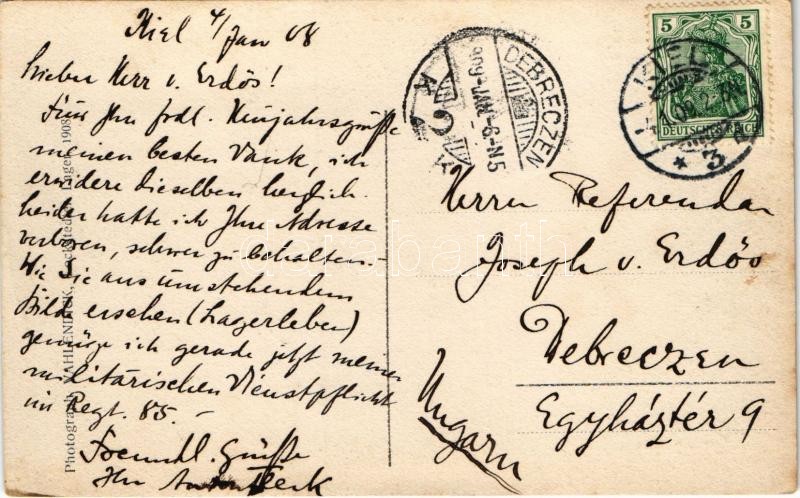 Kiel 4/Jan 08
Lieber Herr v. Erdös!
Für Ihre frdl. Neujahrsgrüße
meinen besten Dank, ich
erwidere dieselben herzlich.
Leider hatte ich Ihre Adresse
verloren, schwer zu behalten.-
Wie Sie aus umstehendem
Bild ersehen (Lagerleben)
genüge ich gerade jetzt meiner
militärischen Dienstpflicht
im Regt. 85. -
Freundl. Grüße
Ihr
DEBRECZEN
5 5
KIEL
DEUTSCHES REICH
* 3
Herrn Referendar
Joseph v. Erdös
Debreczen
Egyháztér 9
Ungarn
Photograph VAHLENDICK, Lockstedter Lager, 1908
darabanth